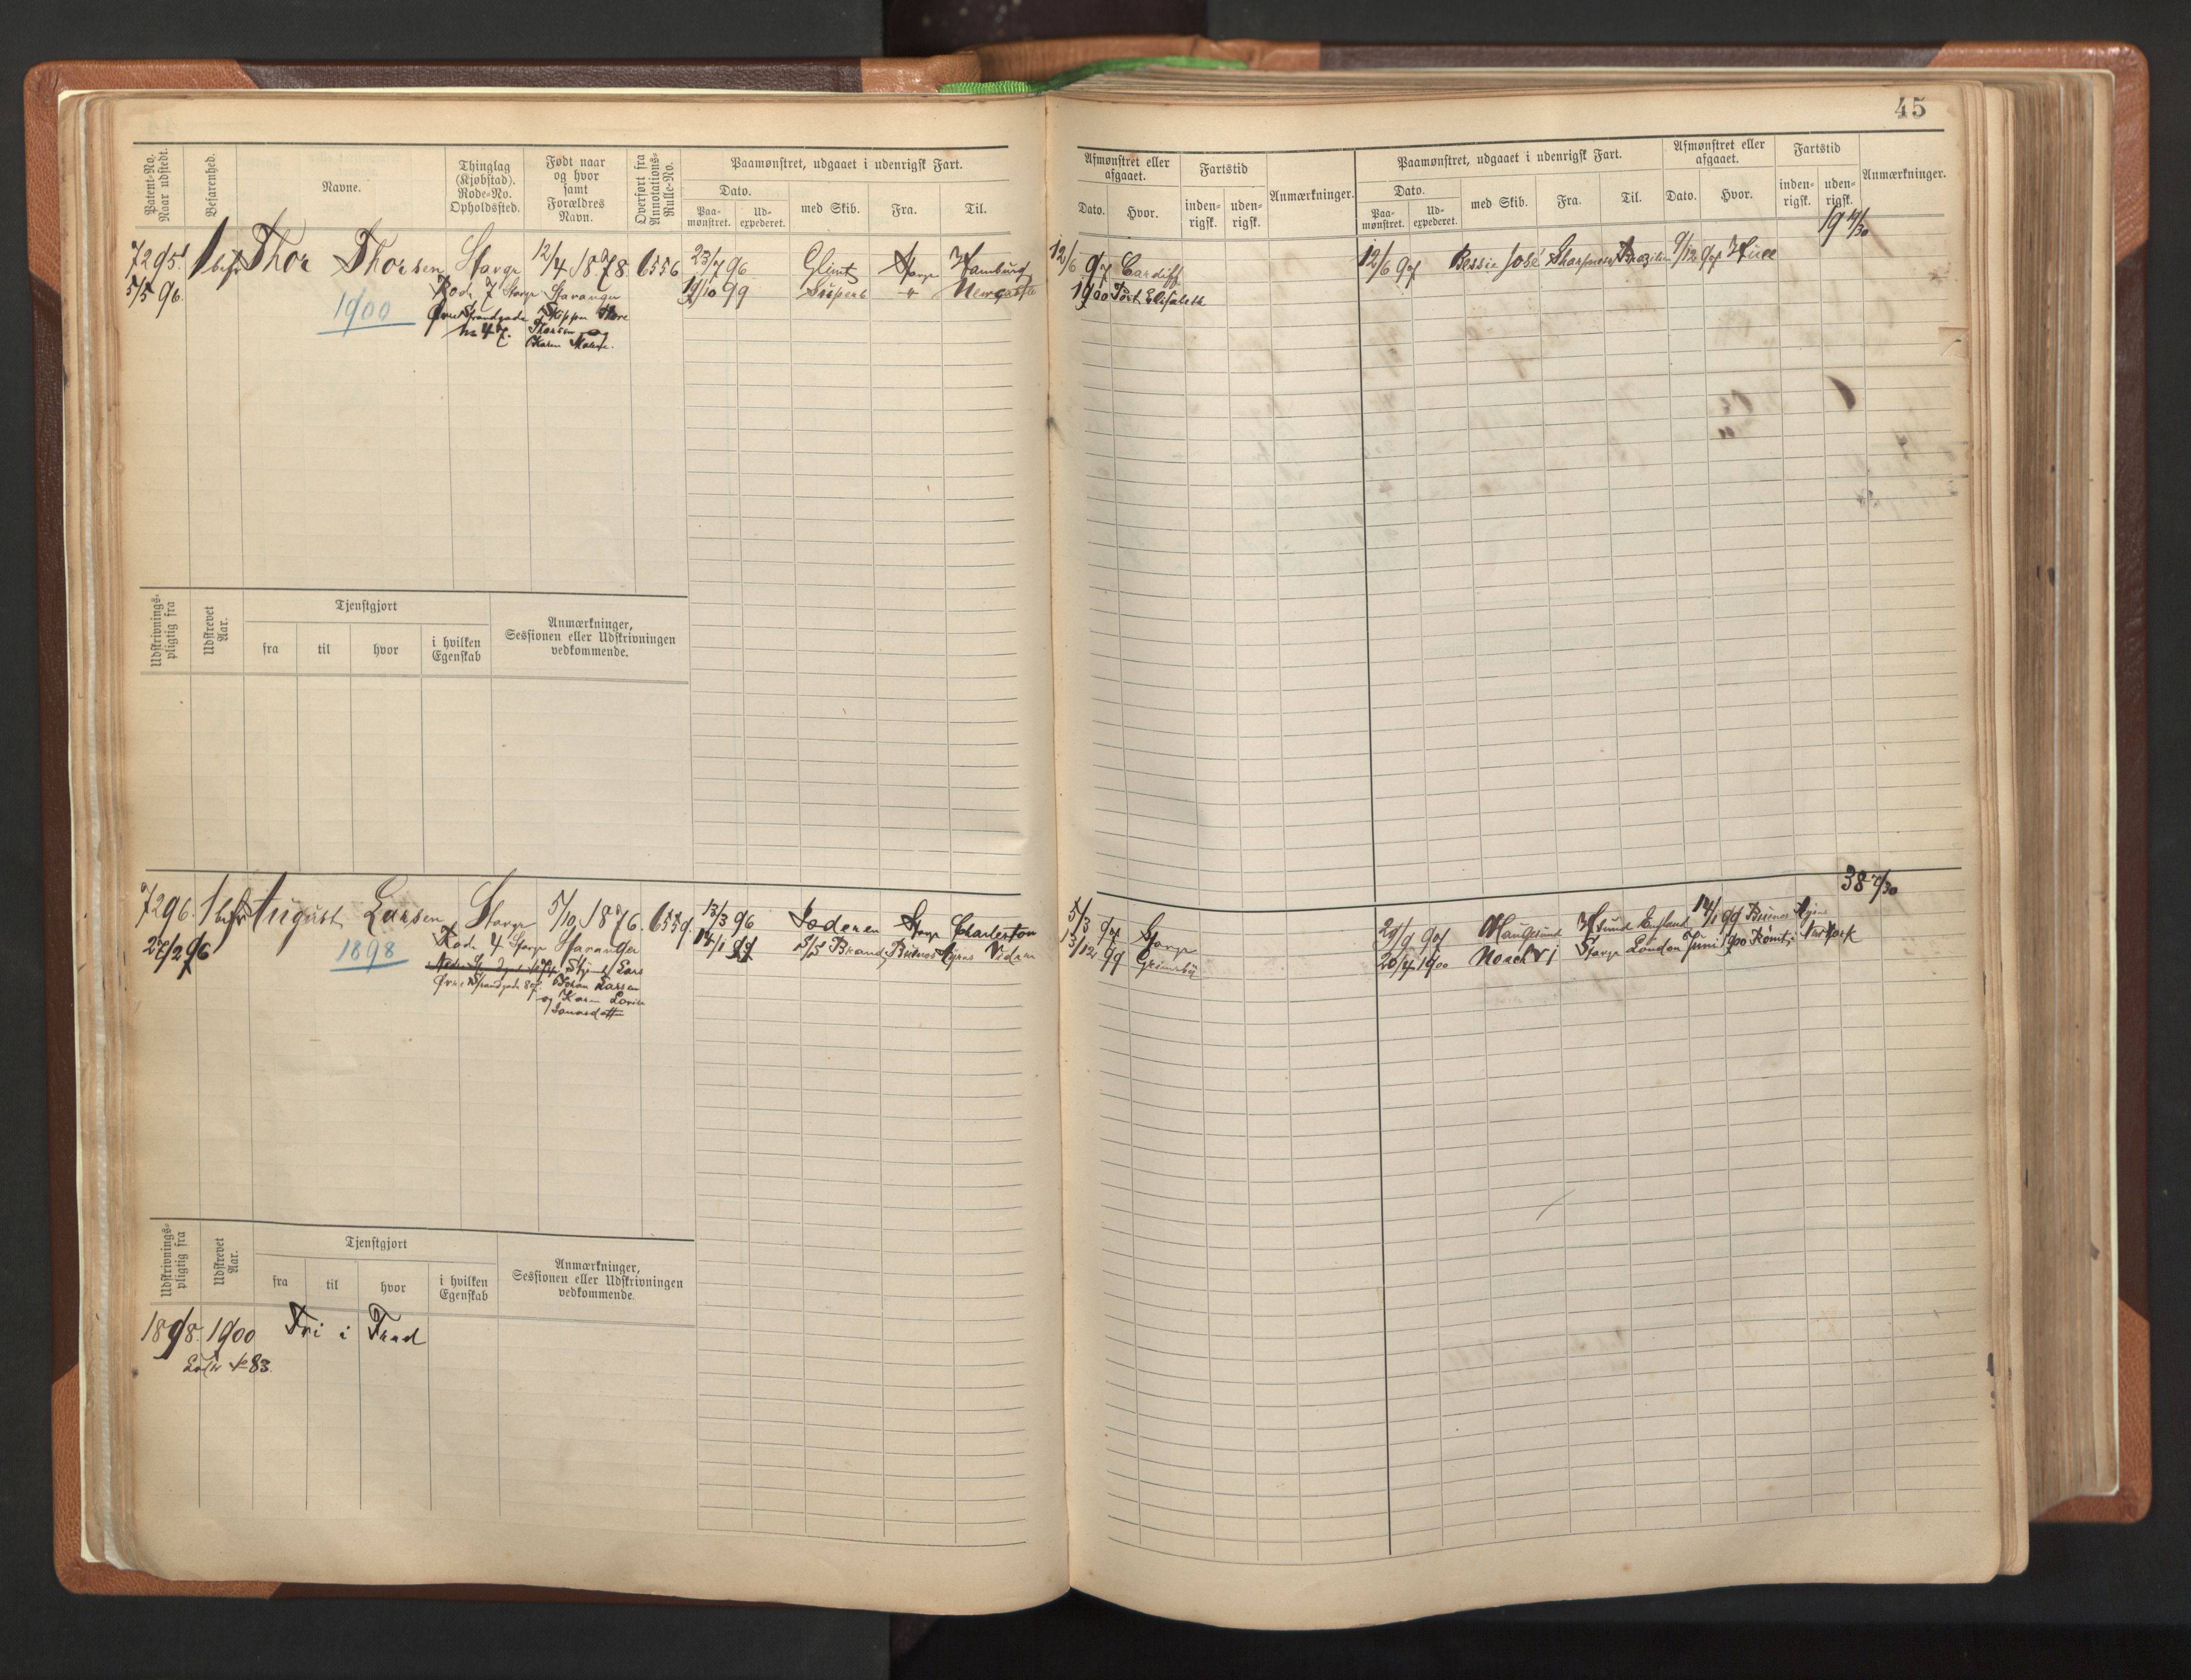 45
Patent-No. Naar udstedt.
Befarenhed.
Navne.
Thinglag (Kjøbstad). Rode-No. Opholdssted.
Født naar og hvor samt Forældres Navn.
Overført fra Annotations-Rulle-No.
Paamønstret, udgaaet i udenrigsk Fart.
Dato.
Paa-mønstret.
Ud-expederet.
med Skib.
Fra.
Til.
Afmønstret eller afgaaet.
Dato.
Hvor.
Fartstid
inden-rigsk.
uden-rigsk.
Anmærkninger.
Paamønstret, udgaaet i udenrigsk Fart.
Dato.
Paa-mønstret.
Ud-expederet.
med Skib.
Fra.
Til.
Afmønstret eller afgaaet.
Dato.
Hvor.
Fartstid
inden-rigsk.
uden-rigsk.
Anmærkninger.
7295
5/5 96.
1 bef
Thor Thorsen
1900
Stavgr
Rode 7 Stavgr
Øvre Strandgade
No 47.
12/4 1878
Stavanger
Skipper Thore
Thorsen og
Karen Malene.
6556
23/7 96 Glimt Stavgr Hamburg
19/10 99 Superb " Newcastle
12/6 97 Cardiff
1900 Port Elisabeth
12/6 97 Bessie José Sharpness Brazilien 9/12 97 Hull
19
Udskrivnings-pligtig fra
Udskrevet Aar.
Tjenstgjort
fra
til
hvor
i hvilken Egenskab
Anmærkninger, Sessionen eller Udskrivningen vedkommende.
7296.
27/2 96
1 bef
August Larsen
1898
Stavgr
Rode 4 Stavgr
Øvre Strandgade
5/10 1876.
Stavanger
Lars
Johan Larsen
og Karen
6559.
13/3 96 Jæderen Stavgr Charleston
14/1 99 S/S Brand Buenos Ayres
5/3 97 Stavgr
13/12 99 Grimsby
29/9 97 Haugesund Hsund England 14/1 99 Buenos Ayres
20/4 1900 Noach VI Stavgr London Juni 1900 Rømt i New York
38 7/30
Udskrivnings-pligtig fra
Udskrevet Aar.
Tjenstgjort
fra
til
hvor
i hvilken Egenskab
Anmærkninger, Sessionen eller Udskrivningen vedkommende.
1898. 1900 Fri i Fred
No 83.